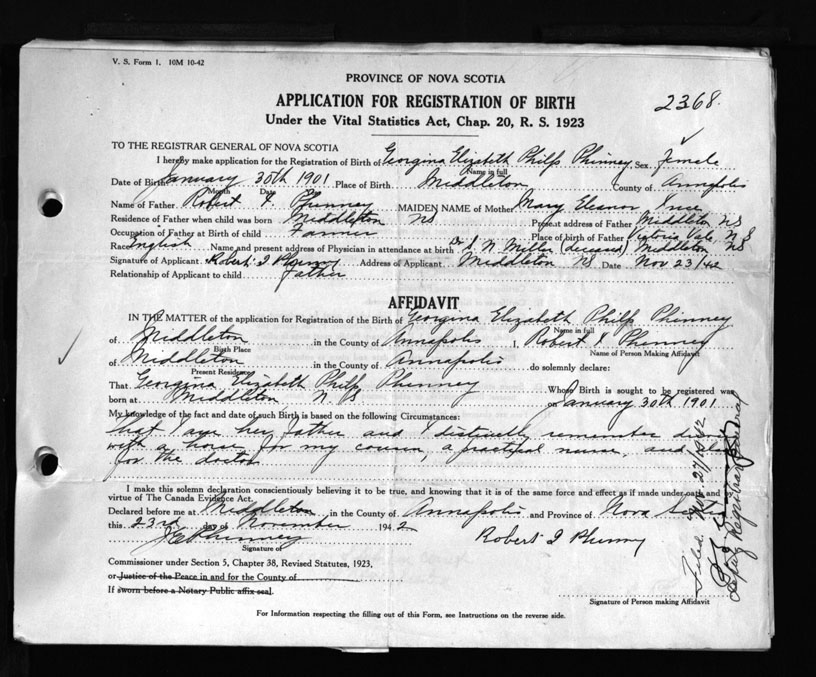 V. S. Form 1. 10M 10-42
PROVINCE OF NOVA SCOTIA
APPLICATION FOR REGISTRATION OF BIRTH 2368.
Under the Vital Statistics Act, Chap. 20, R. S. 1923
TO THE REGISTRAR GENERAL OF NOVA SCOTIA
I hereby make application for the Registration of Birth of Georgina Elizabeth Philp Phinney Sex female
Name in full
Date of Birth January 30th 1901 Place of Birth Middleton County of Annapolis
Month Date
Name of Father Robert I Phinney MAIDEN NAME of Mother Mary Eleanor
Residence of Father when child was born Middleton NS Present address of Father Middleton NS
Occupation of Father at Birth of child Farmer Place of birth of Father Victoria Vale, NS
Race English Name and present address of Physician in attendance at birth Dr S. N. Miller (deceased) Middleton NS
Signature of Applicant Robert I Phinney Address of Applicant Middleton NS Date Nov 23/42
Relationship of Applicant to child Father
AFFIDAVIT
IN THE MATTER of the application for Registration of the Birth of Georgina Elizabeth Philp Phinney
Name in full
of Middleton in the County of Annapolis I, Robert I Phinney
Birth Place Name of Person Making Affidavit
of Middleton in the County of Annapolis do solemnly declare:
Present Residence
That Georgina Elizabeth Philp Phinney Whose Birth is sought to be registered was
born at Middleton N.S on January 30th 1901
My knowledge of the fact and date of such Birth is based on the following Circumstances:
that I am her father and I distinctly remember
with a horse for my cousin, a practical nurse, and
for the doctor
I make this solemn declaration conscientiously believing it to be true, and knowing that it is of the same force and effect as if made under oath and by
virtue of The Canada Evidence Act.
Declared before me at Middleton in the County of Annapolis and Province of Nova Scotia
this 23rd day of November 1942
J E Phinney Robert I Phinney
Signature of
Commissioner under Section 5, Chapter 38, Revised Statutes, 1923,
or Justice of the Peace in and for the County of
If sworn before a Notary Public affix seal.
Signature of Person making Affidavit
For Information respecting the filling out of this Form, see Instructions on the reverse side.
Filed Nov 27/1942
Deputy Registrar General